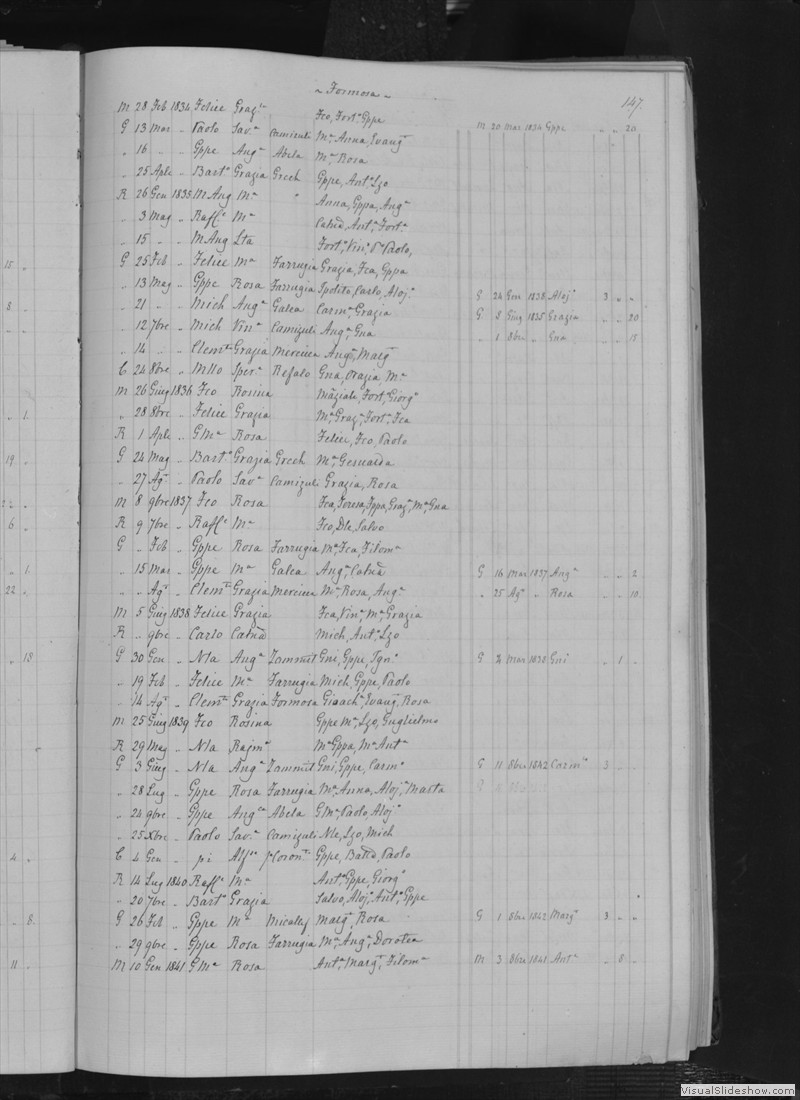 ~ Formosa ~
147.
M 28 Feb 1834 Felice Graza Fco, Forta, Gppa
G 13 Mar „ Paolo Sava Camizuli Ma, Anna, Evanga M 20 Mar 1834 Gppe „ „ 20
„ 16 „ „ Gppe Anga Abela Ma Rosa
„ 25 Aple „ Barto Grazia Grech Gppe, Anto, Lzo
R 26 Gen 1835 M Ang Ma „ Anna, Gppa, Anga
„ 3 Mag „ Raffe Ma Catna, Anta, Forta
„ 15 „ „ M Ang Lta Forto, Vino, Paolo,
15 „ G 25 Feb „ Felice Ma Farrugia Grazia, Fca, Gppa
„ 13 Mag „ Gppe Rosa Farrugia Spolito, Carlo, Aloja
8 „ „ 21 „ „ Mich Anga Galea Carma, Grazia G 24 Gen 1838 Aloj 3 „ „
„ 12 7bre „ Mich Vina Camizuli Anga, Gna G 8 Giug 1835 Grazia „ „ 20
„ 14 „ „ Clemte Grazia Mercieca Anga, Marga „ 1 8bre „ Gna „ „ 15
C 24 8bre „ Mllo Spera Refalo Gna, Orazia Ma
M 26 Giug 1836 Fco Rosina Forta, Giorga
„ 1. „ 28 8bre „ Felice Grazia Ma, Graza, Forta, Fca
R 1 Aple „ G Ma Rosa Felice, Fco, Paolo
19 „ G 24 Mag „ Barto Grazia Grech Ma, Gesualda
„ 27 Ago „ Paolo Sava Camizuli Grazia, Rosa
M 8 9bre 1837 Fco Rosa Fca, Teresa, Gppa, Graza, Ma, Gna
6 „ R 9 7bre „ Raffe Ma Fco, Dle, Salvo
G „ Feb „ Gppe Rosa Farrugia Ma, Fca, Filoma
„ 1 „ 15 Mar „ Gppe Ma Galea Anga, Catna G 16 Mar 1837 Anga „ „ 2
22 „ „ „ Ago „ Clemte Grazia Mercieca Ma, Rosa, Anga „ 25 Ago „ Rosa „ „ 10
M 5 Giug 1838 Felice Grazia Fca, Vina, Ma, Grazia
R „ 9bre „ Carlo Catna Mich, Anto, Lzo
„ 18 G 30 Gen „ Nla Anga Zammit Gni, Gppe, Igno G 2 Mar 1838 Gni „ 1 „
„ 19 Feb „ Felice Ma Farrugia Mich, Gppe, Paolo
„ 14 Ago „ Clemte Grazia Formosa Giaacha, Evanga, Rosa
M 25 Giug 1839 Fco Rosina Gppe Ma, Lzo, Guglielmo
R 29 Mag „ Nla Rajma Ma Gppa, Ma Anta
G 3 Giug „ Nla Anga Zammit Gni, Gppe, Carmo G 11 8bre 1842 Carmo 3
„ 28 Lug „ Gppe Rosa Farrugia Ma, Anna, Aloja, Marta
„ 24 9bre „ Gppe Anga Abela G Ma, Paolo, Alojo
„ 25 Xbre „ Paolo Sava Camizuli Nle, Lzo, Mich
4 „ C 4 Gen „ pi Gppe, Batta, Paolo
R 14 Lug 1840 Raffe Ma Anto, Gppe, Giorgo
„ 20 7bre „ Barto Grazia Salvo, Alojo, Anto, Gppe
„ 8. G 26 Feb „ Gppe Ma Micallef Marga, Rosa G 1 8bre 1842 Marga 3 „ „
„ 29 9bre „ Gppe Rosa Farrugia Ma, Anga, Dorotea
11 „ M 10 Gen 1841 G Ma Rosa Anta, Marga, Filoma M 3 8bre 1841 Anta „ 8 „
VisualSlideshow.com